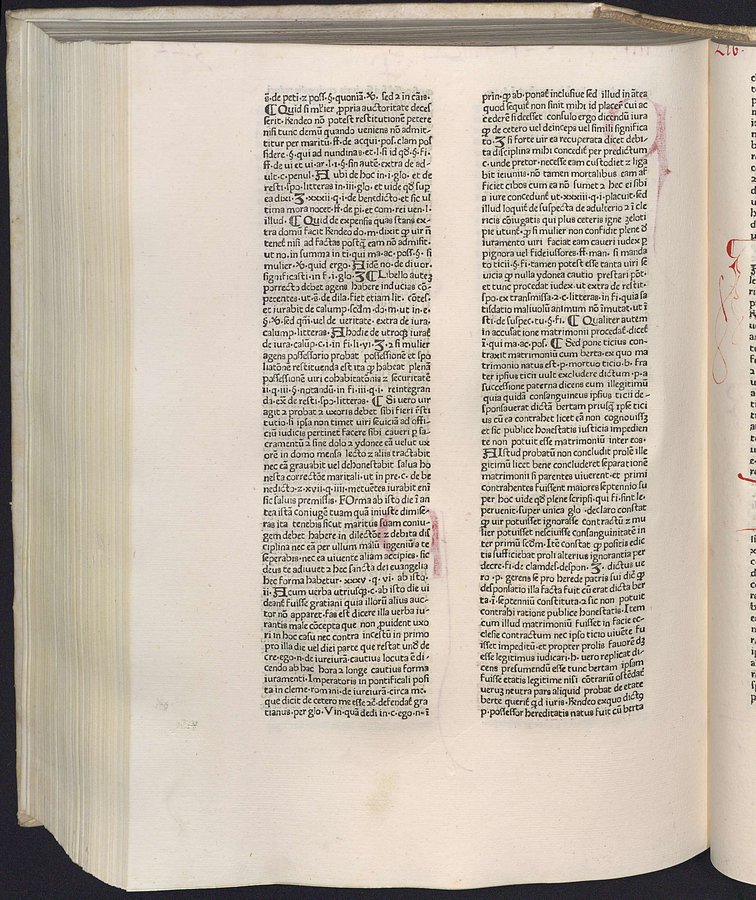 s̄. de peti. ⁊ poss. §. quoniā. xb. sed ⁊ in cāis.
¶ Quid si mulier ꝓpria auctoritate deces
serit. Rendeo nō potest restitutionē petere
nisi tunc demū quando veniens nō admit-
titur per maritū. ff. de acqui. pos. clam pos
sidere. §. qui ad nundinas. et. l. si id qđ. §. fi.
ff. de vi et vi ar. l. i. §. sin autē. extra de ad-
ult. c. penul. A ubi de hoc in. i. glo. et de
resti. spo. litteras in. iii. glo. et uide qđ sup
ea dixi. Z. xxxii. q. i. de benedicto. et sic ul
tima mora nocet. ff. de pi. et com. rei ven. l.
illud. ¶ Quid de expensis quas stans ex-
tra domū facit Rendeo do. m. dixit ꝙ uir nō
tenet nisi ad factas postꝗ̄ eam nō admisit.
ut no. in summa in ti. qui ma. ac. poss. §. si
mulier. xb. quid ergo. A idē no. de diuor.
significasti. in f. i. glo. Z ¶ Libello autez
porrecto debet agens habere inducias cō-
petentes. ut. s. de dila. fiet etiam lit. cōtes.
et iurabit de calump. scđm. do. m. ut in. e.
§. xb. sed qm̄. uel de ueritate. extra de iura.
calump. litteras. A hodie de utroqꝫ iurat
de iura. calūp. c. i. in fi. li. vi. Z. ⁊ si mulier
agens possessorio probat possessionē et spo
liatōnē restituenda est ita ꝙ habeat plenā
possessionē uiri cohabitatōnis ⁊ securitatē
ii. q. iii. §. notandū. in fi. iii. q. i. reintegran
da. eē. de resti. spo. litteras. ¶ Si vero uir
agit ⁊ probat ⁊ uxoris debet sibi fieri r̄sti
tutio. li ipsa non timet uiri seuiciā ad offi-
ciū iudicis pertinet facere sibi caueri ꝑ sa
cramentū ⁊ sine dolo ⁊ ydonee eā uelut ux
orē in domo mensa lecto ⁊ aliis tractabit
nec eā grauabit vel dehonestabit salua ho
nesta correctōe maritali. ut in pre. c. de be
nedicto. ⁊. xvii. q. iiii. metuētes iurabit enī
sic saluis premissis. FOrma ab isto die i an
tea istā coniugē tuam quā iniuste dimise-
ras ita tenebis sicut maritus suam coniu-
gem debet habere in dilectōe ⁊ debita dis
ciplina nec eā per ullum malū ingeniū a te
seperabis. nec ea viuente aliam accipies. sic
deus te adiuuet ⁊ hec sancta dei euangelia
hec forma habetur. xxxv. q. vi. ab isto.
ii. A cum verba utriusqꝫ. c. ab isto die ui
deant̄ fuisse gratiani quia illorū alius auc-
tor nō apparet. fas est dicere illa uerba iu-
rantis male cōcepta que non ꝓuident uxo
ri in hoc casu nec contra incestū in primo
pro illa die vel diei parte que restat und de
cre. ego. n. de iureiurā. cautius locuta ē di-
cendo ab hac hora ⁊ longe cautius forma
iuramenti. Imperatoris in pontificali posi
ta in cleme. romani. de iureiurā. circa me.
que dicit de cetero me esse ac̄. defendat̄ gra
tianus. per glo. V in quā dedi in. c. ego. n. i
prin. ꝙ ab. ponat̄ inclusiue sed illud in ātea
quod sequit̄ non sinit mihi id placer̄ cui ac
ceder̄ si decesset consulo ergo dicendū iura
ꝙ de cetero uel deinceps uel simili significa
to. Z si forte uir ea recuperata dicet debi-
ta disciplina mihi concedit̄ per predictum
c. unde pretor. necesse eam custodiet ⁊ liga
bit ieiuniis. nō tamen mortalibus eam af
ficiet cibos cum ea nō sumet ⁊ hec ei sibi
a iure concedunt̄ ut. xxxiii. q. i. placuit. sed
illud loquit̄ de suspecta de adulterio ⁊ ī cle
ricis cōiugatis qui plus ceteris igne zeloti
pie utunt̄. ꝙ si mulier non confidit plene d̄
iuramento uiri faciat eam caueri iudex ꝑ
pignora uel fideiussores. ff. man. si manda
to ticii. §. fi. tamen potest esse tanta uiri se
uicia ꝙ nulla ydonea cautio prestari pōt.
et tunc procedat iudex. ut extra de restit.
spo. ex transmissa. ⁊. c. litteras. in fi. quia sa
tisdatio maliuolū animum nō imutat. ut ī
sti. de suspec. tu. §. fi. ¶ Qualiter autem
in accusatione matrimonii procedat̄. dicet̄
i. qui ma. ac. pos. ¶ Sed pone ticius con-
traxit matrimoniū cum berta. ex quo ma
trimonio natus est. p. mortuo ticio. b. fra
ter ipsius ticii uult excludere dictum. p. a
successione paterna dicens eum illegitimū
quia quidā consanguineus ipsius ticii de-
sponsauerat dictā bertam priusꝗ̄ ipse tici
us cū ea contrahet̄ licet eā non cognouissꝫ
et sic publice honestatis iusticia impedien
te non potuit esse matrimoniū inter eos.
A Istud probatū non concludit prolē ille
gitimū licet bene concluderet separationē
matrimonii si parentes uiuerent. et primi
contrahentes fuissent maiores septennio su
per hoc vide qđ plene scripsi. qui fi. sint le.
peruenit. super unica glo. declaro constat
ꝙ uir potuisset ignorasse contractū ⁊ mu
lier potuisset nesciuisse consanguinitatē in
ter primū ⁊ scđm. Itē constat ꝙ positis edic
tis sufficiebat proli alterius ignorantia per
decre. fi. de clamdes. despon. Z. dictus ue
ro. p. gerens se pro herede patris sui dic̄ ꝙ
desponsatio illa facta fuit cū erat dicta ber
ta. i. septenniū constituta. ⁊ sic non potuit
contrahi ratione publice honestatis. Item
cum illud matrimoniū fuisset in facie ec-
clesie contractum nec ipso ticio viuēte fu
isset impeditū. et propter prolis fauorē dꝫ
esse legitimus iudicari. b. uero replicat di-
cens presumendū esse tunc bertam ipsam
fuisse etatis legitime nisi cōtrariū ostēdat̄
veruꝫ neutra pars aliquid probat de etate
berte querit̄ qđ iuris. Rendeo exquo dictꝰ
p. possessor hereditatis natus fuit cū berta